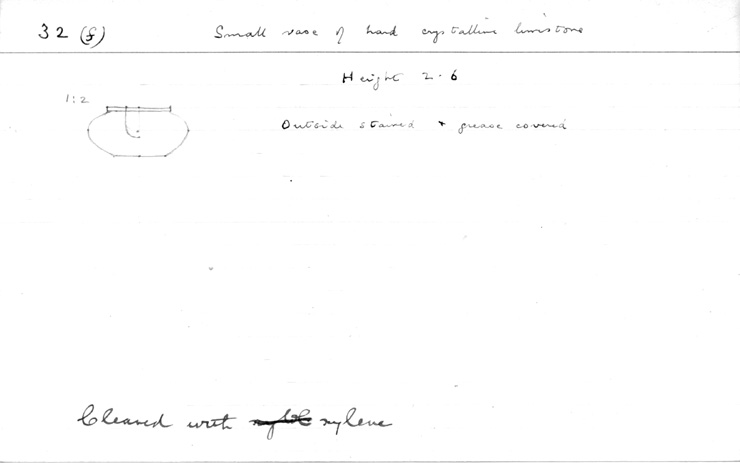 32 (f) Small vase of hard crystalline limestone
Height 2.6
1:2
Outside stained + grease covered
Cleaned with xylene